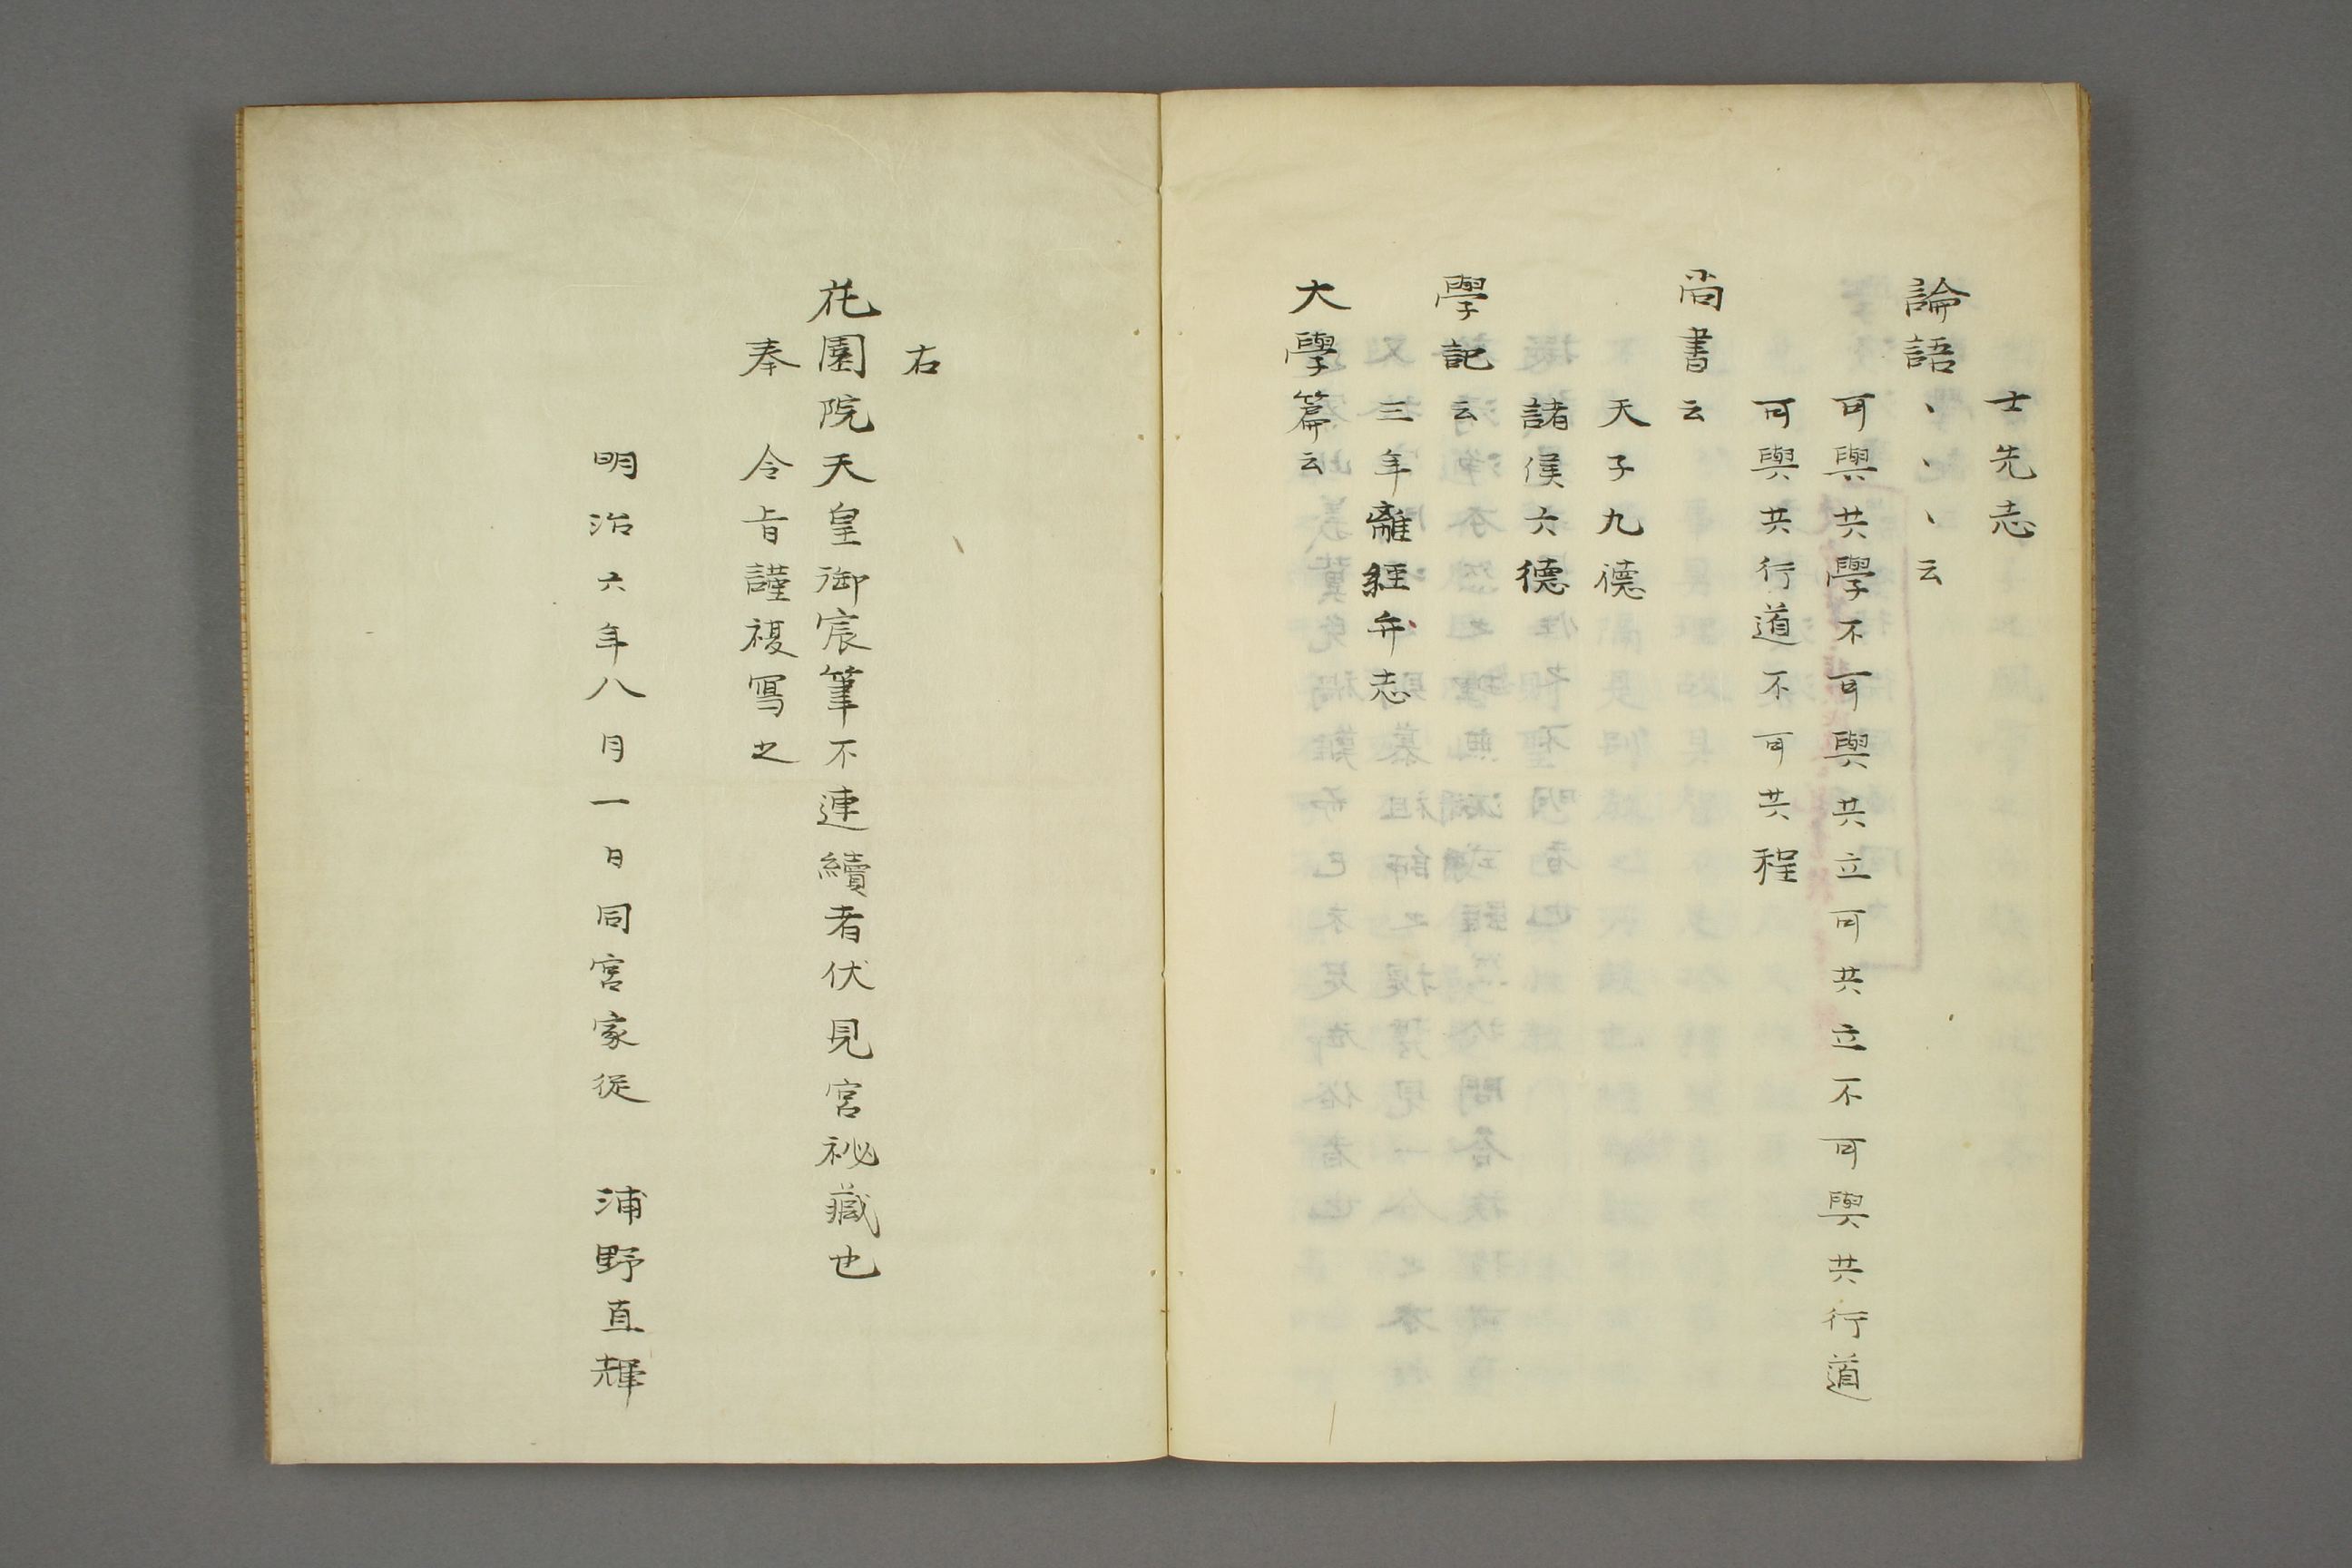 士先志
論語、、、云
可與共學不可與共立可共立不可與共行道
可與共行道不可共程
尚書云
天子九德
諸侯六德
學記云
三年離經弁志
大學篇云
右
花園院天皇御宸筆不連續者伏見宮祕藏也
奉　令旨謹複寫之
明治六年八月一日同宮家從　浦野直輝